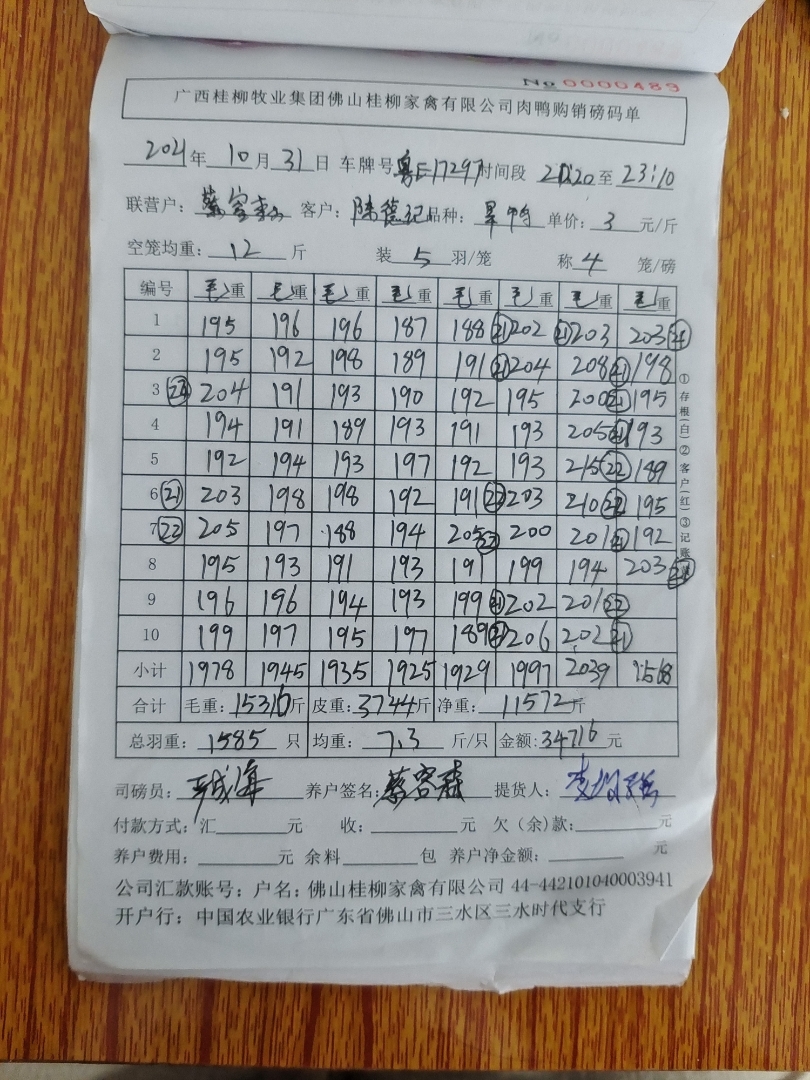 No 0000489
广西桂柳牧业集团佛山桂柳家禽有限公司肉鸭购销磅码单
2021年 10月 31日 车牌号 粤E17297 时间段 21:20 至 23:10
联营户: 蔡容森 客户: 陈德记 品种: 旱鸭 单价: 3 元/斤
空笼均重: 12 斤 装 5 羽/笼 称 4 笼/磅
编号 毛重 毛重 毛重 毛重 毛重 毛重 毛重 毛重
1 195 196 196 187 188 ㉑202 ㉑203 203㉑
2 195 192 198 189 191 ㉑204 208㉑ 198
3 204 191 193 190 192 195 200㉑ 195
4 194 191 189 193 191 193 205㉑ 193
5 192 194 193 197 192 193 215㉒ 189
6 ㉑203 198 198 192 191 ㉒203 210㉒ 195
7 ㉒205 197 188 194 205㉓ 200 201㉑ 192
8 195 193 191 193 191 199 194 203
9 196 196 194 193 199 ㉑202 201㉒
10 199 197 195 197 189 ㉑206 202㉑
小计 1978 1945 1935 1925 1929 1997 2039 1568
合计 毛重: 15316斤 皮重: 3744斤 净重: 11572斤
总羽重: 1585 只 均重: 7.3 斤/只 金额: 34716 元
司磅员: 养户签名: 蔡容森 提货人:
付款方式: 汇 元 收: 元 欠(余)款: 元
养户费用: 元 余料 包 养户净金额: 元
公司汇款账号: 户名: 佛山桂柳家禽有限公司 44-442101040003941
开户行: 中国农业银行广东省佛山市三水区三水时代支行
①存根(白)②客户(红)③记账